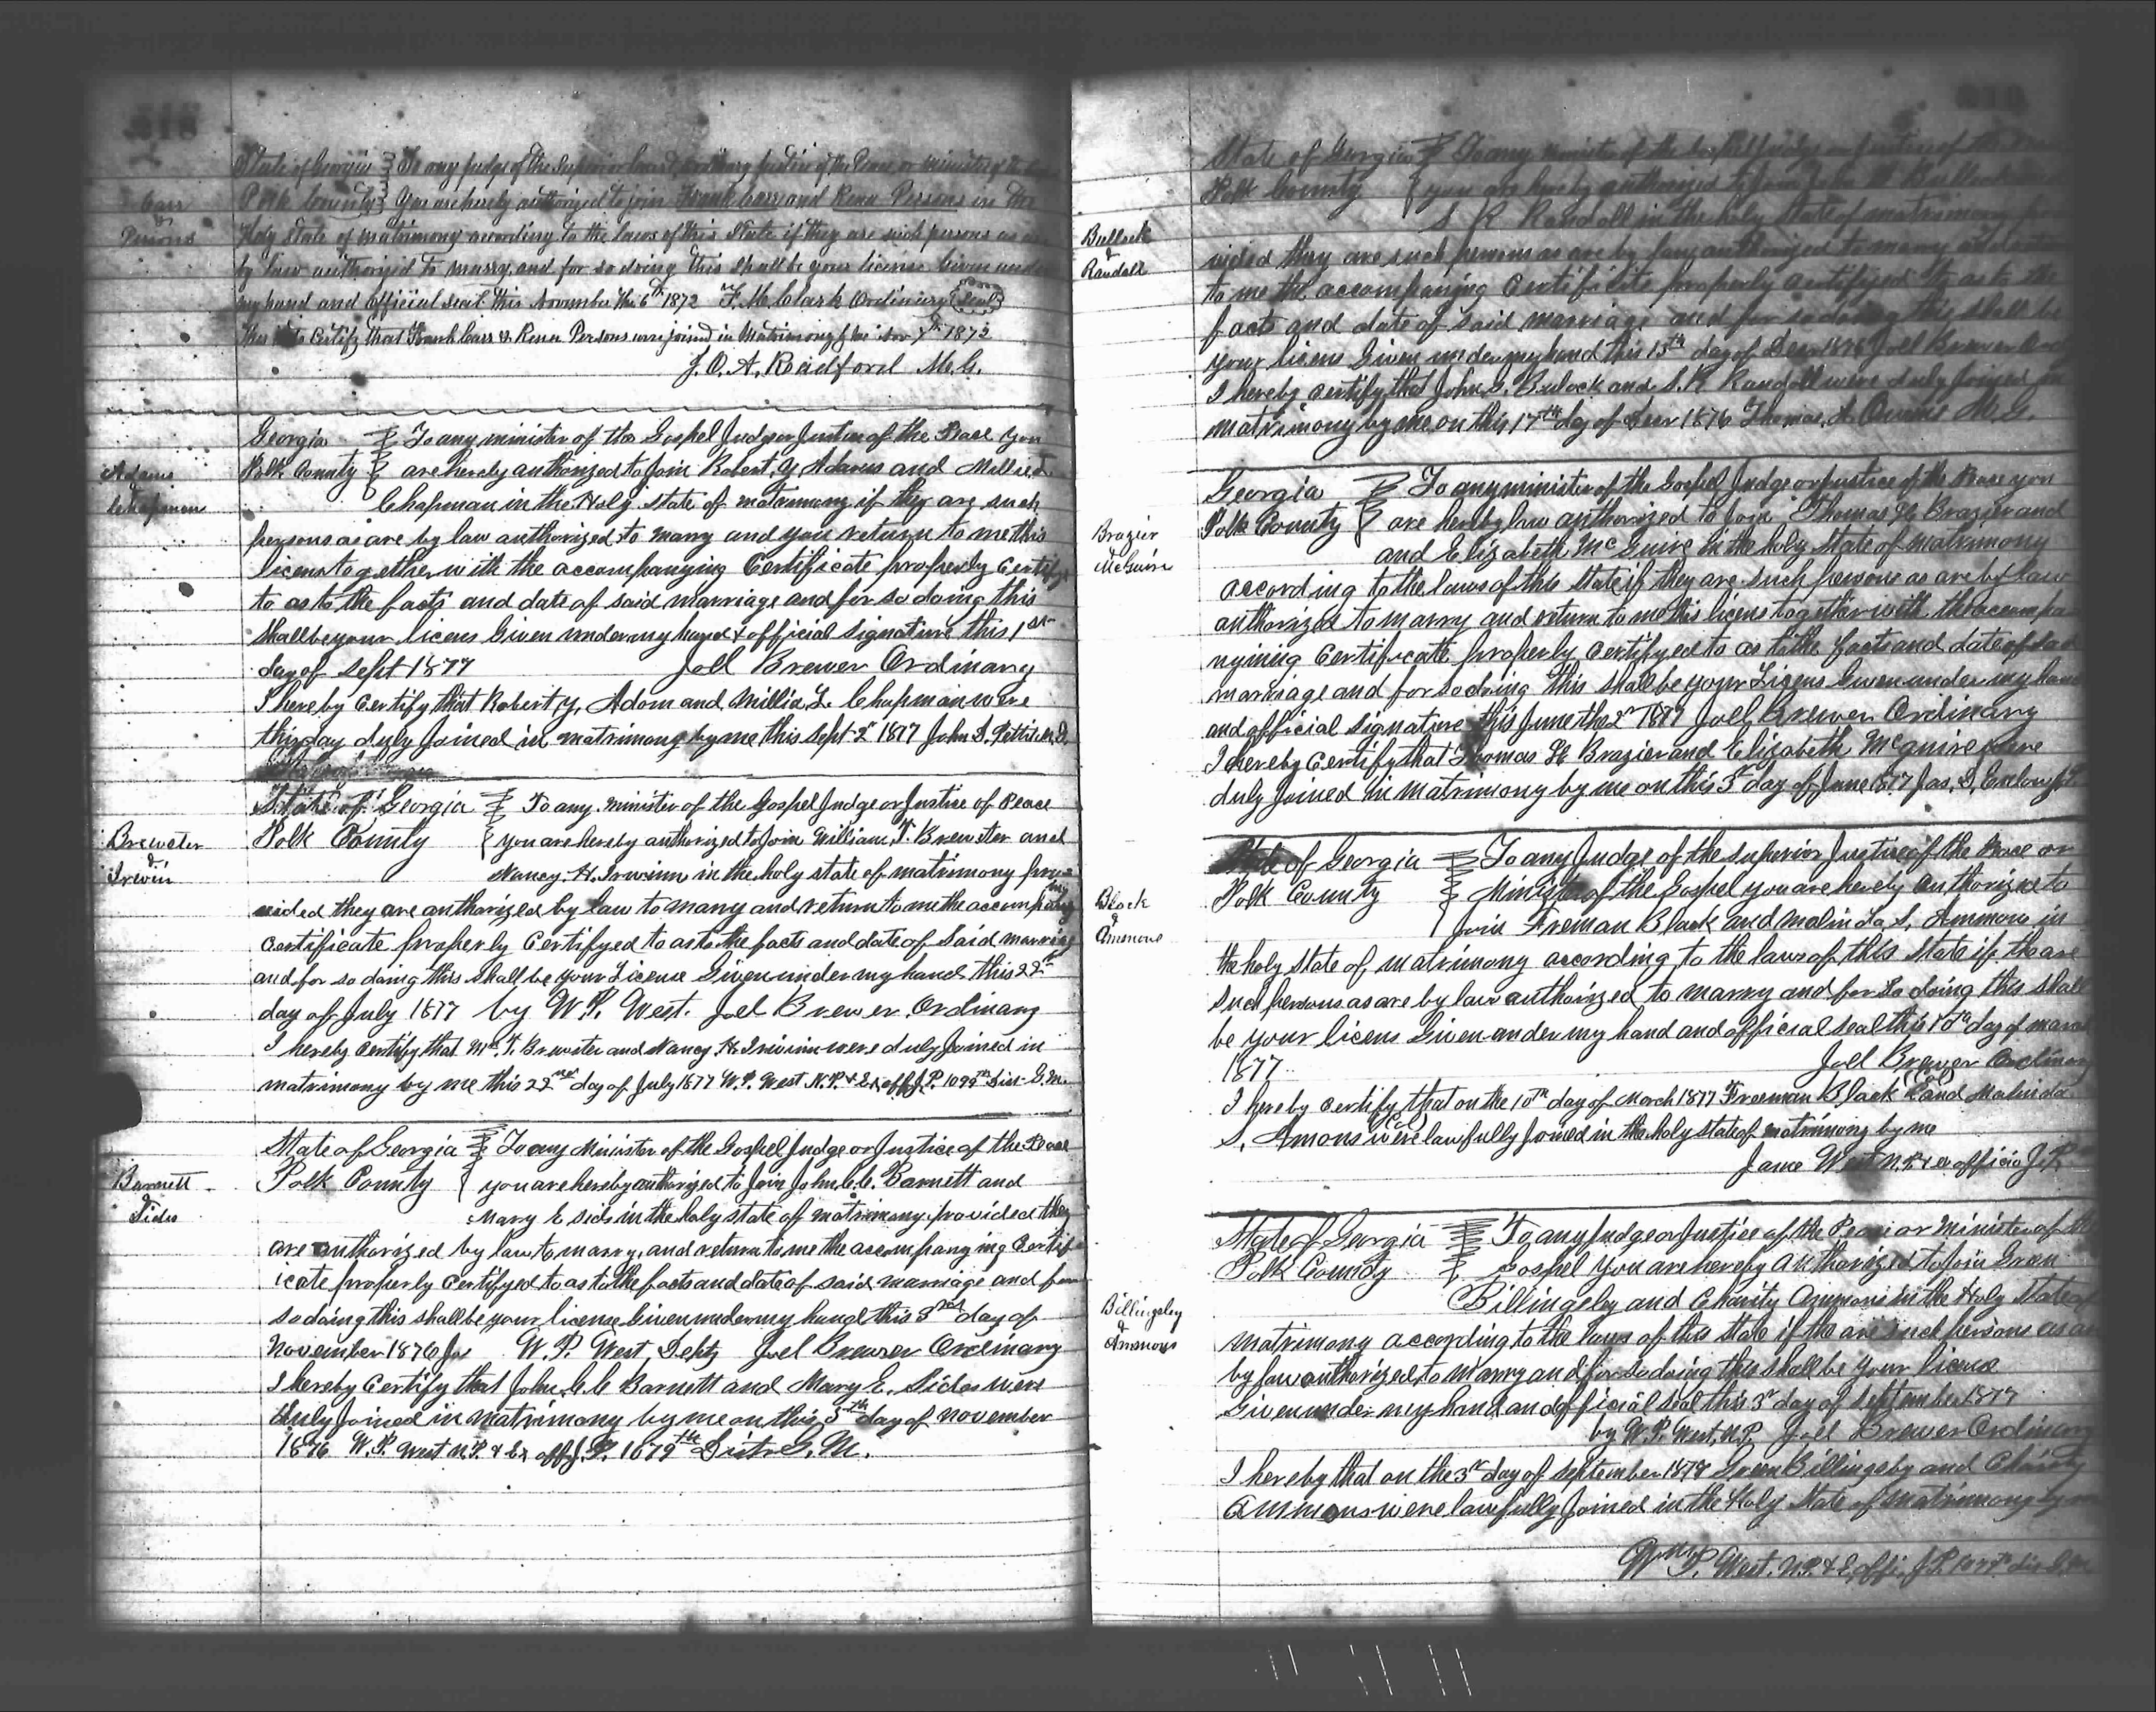 Carr
&
Persons
State of Georgia To any judge of the Superior Court, ordinary Justice of the Peace, or minister of the
Polk County You are hereby authorized to join Frank Carr and Rena Persons in the
Holy State of matrimony according to the laws of this State if they are such persons as are
by law authorized to marry, and for so doing this shall be your license Given under
my hand and official seal this November the 6th 1872 F. M. Clark Ordinary Seal
This is to Certify that Frank Carr & Rena Persons were joined in Matrimony by me Nov 7th 1873
J. O. A. Radford M. G.
Adams
&
Chapman
Georgia To any minister of the Gospel Judge or Justice of the Peace You
Polk County are hereby authorized to Join Robert, Y Adams and Millie L.
Chapman in the Holy state of matrimony if they are such
persons as are by law authorized to marry and you return to me this
licens together with the accompanying Certificate properly Certify
to as to the facts and date of said marriage and for so doing this
shall be your licens Given under my hand & official signature this 1st
day of Sept 1877 Joel Brewer Ordinary
I hereby Certify that Robert Y, Adam and Millia L. Chapman were
this day duly Joined in matrimony by me this Sept 2d 1877 John S.
Brewster
&
Irwin
State of Georgia To any minister of the Gospel Judge or Justice of Peace
Polk County you are hereby authorized to Join William T. Brewster and
Nancy. H. Irwinn in the holy state of matrimony pro=
vided they are authorized by law to marry and return to me the accompanying
Certificate properly Certifyed to as to the facts and date of Said marriag
and for so doing this shall be your License Given under my hand this 22nd
day of July 1877 by W. P. West. Joel Brewer. Ordinary
I hereby Certify that Wm. T. Brewster and Nancy H. Irwinn were duly Joined in
matrimony by me this 22nd day of July 1877 W. P. West N. P. & Ex off J. P. 1079th Dist G. M.
Barnett
&
Sides
State of Georgia To any Minister of the Gospel Judge or Justice of the Peace
Polk County you are hereby authorized to Join John C. C. Barnett and
Mary E sids in the holy state of matrimony provided they
are authorized by law to marry, and return to me the accompanying Certif
icate properly Certifyed to as to the facts and date of said marriage and for
so doing this shall be your license Given under my hand this 3rd day of
November 1876 W. P. West, Depty Joel Brewer Ordinary
I hereby Certify that John C. C Barnett and Mary E. Sides were
duly Joined in matrimony by me on this 5th day of november
1876 W. P. West N. P. & Ex off J. P. 1079th Distr G. M.
Bullock
&
Randall
State of Georgia To any minister of the Gospel Judge or Justice of the
Polk County you are hereby authorized to Join John
S. R Randall in the holy state of matrimony pro
vided they are such persons as are by law authorized to marry and return
to me the accompanying Certificate properly certifyed to as to the
facts and date of said marriage and for so doing this shall be
your licens Given under my hand this 15th day of Decr 1876 Joel Brewer Ord
I hereby certify that John G. Bulock and S. R Randall were duly Joined in
matrimony by me on this 17th day of Decr 1876 Thomas, A Owens M. G.
Brazier
&
McGuire
Georgia To any minister of the Gospel Judge or justice of the Peace you
Polk County are hereby law authorized to Join Thomas H Brazier and
and Elizabeth McGuire in the holy state of matrimony
according to the laws of this State if they are such persons as are by law
authorized to marry and return to me this licens together with the accompa
nying Certificate properly Certifyed to as to the facts and date of said
marriage and for so doing this shall be your Licens Given under my hand
and official signature this June the 2nd 1877 Joel Brewer Ordinary
I hereby Certify that Thomas H Brazier and Elizabeth McGuire were
duly Joined in matrimony by me on this 3rd day of June 1877 Jas, D,
Black
&
Ammons
State of Georgia To any Judge of the superior Justice of the Peace or
Polk County Minister of the Gospel you are hereby Authorized to
Join Freman Black and Malinda, S, Ammons in
the holy state of matrimony according to the laws of this State if tha are
such persons as are by law authorized to marry and for so doing this shall
be your licens Given under my hand and official seal this 10th day of march
1877 Joel Brewer Ordinary
I hereby certify that on the 10th day of March 1877 Freeman Black (Col) and Malinda
S, Amons (Col) were lawfully Joined in the holy state of matrimony by me
Jame West N. P. & ex officio J. P.
Billingsley
&
Ammons
State of Georgia To any Judge or Justice of the Peace or Minister of the
Polk County Gospel You are hereby Authorized to Join Gren
Billingsley and Charity Ammons in the Holy State of
matrimony according to the laws of this state if tha are such persons as are
by law authorized to marry and for so doing this shall be your licens
Given under my hand and official seal this 3rd day of September 1877
by W. P. West, N. P, Joel Brewer Ordinary
I hereby that on the 3rd day of September 1878 Gren Billingsley and Charity
Ammons were lawfully Joined in the Holy State of matrimony by me
Wm P. West. N. P. & E, offi, J. P. 1077th dis G. M